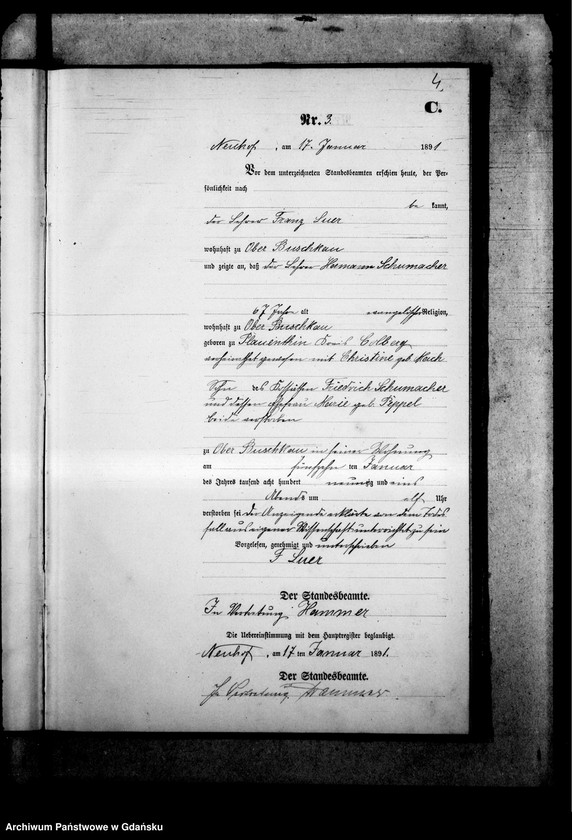 4.
C.
Nr. 3.
Neuhof, am 17. Januar 1891
Vor dem unterzeichneten Standesbeamten erschien heute, der Per-
sönlichkeit nach
be kannt,
der Lehrer Franz Suer
wohnhaft zu Ober Buschkau
und zeigte an, daß der Lehrer Hermann Schumacher
67 Jahre alt evangelischer Religion,
wohnhaft zu Ober Buschkau
geboren zu Plauenthin Kreis Colberg
verheirathet gewesen mit Christine geb.
Sohn des Kossäthen Friedrich Schumacher
und dessen Ehefrau Marie geb. Peppel
beide verstorben
zu Ober Buschkau in seiner Wohnung
am fünfzehn ten Januar
des Jahres tausend acht hundert neunzig und eins
Abends um elf Uhr
verstorben sei. Der Anzeigende erklärte von dem Todes
fall aus eigener Wissenschaft unterrichtet zu sein
Vorgelesen, genehmigt und unterschrieben
F Suer
Der Standesbeamte.
In Vertretung Hammer
Die Uebereinstimmung mit dem Hauptregister beglaubigt.
Neuhof, am 17 ten Januar 1891.
Der Standesbeamte.
In Vertretung Hammer
Archiwum Państwowe w Gdańsku